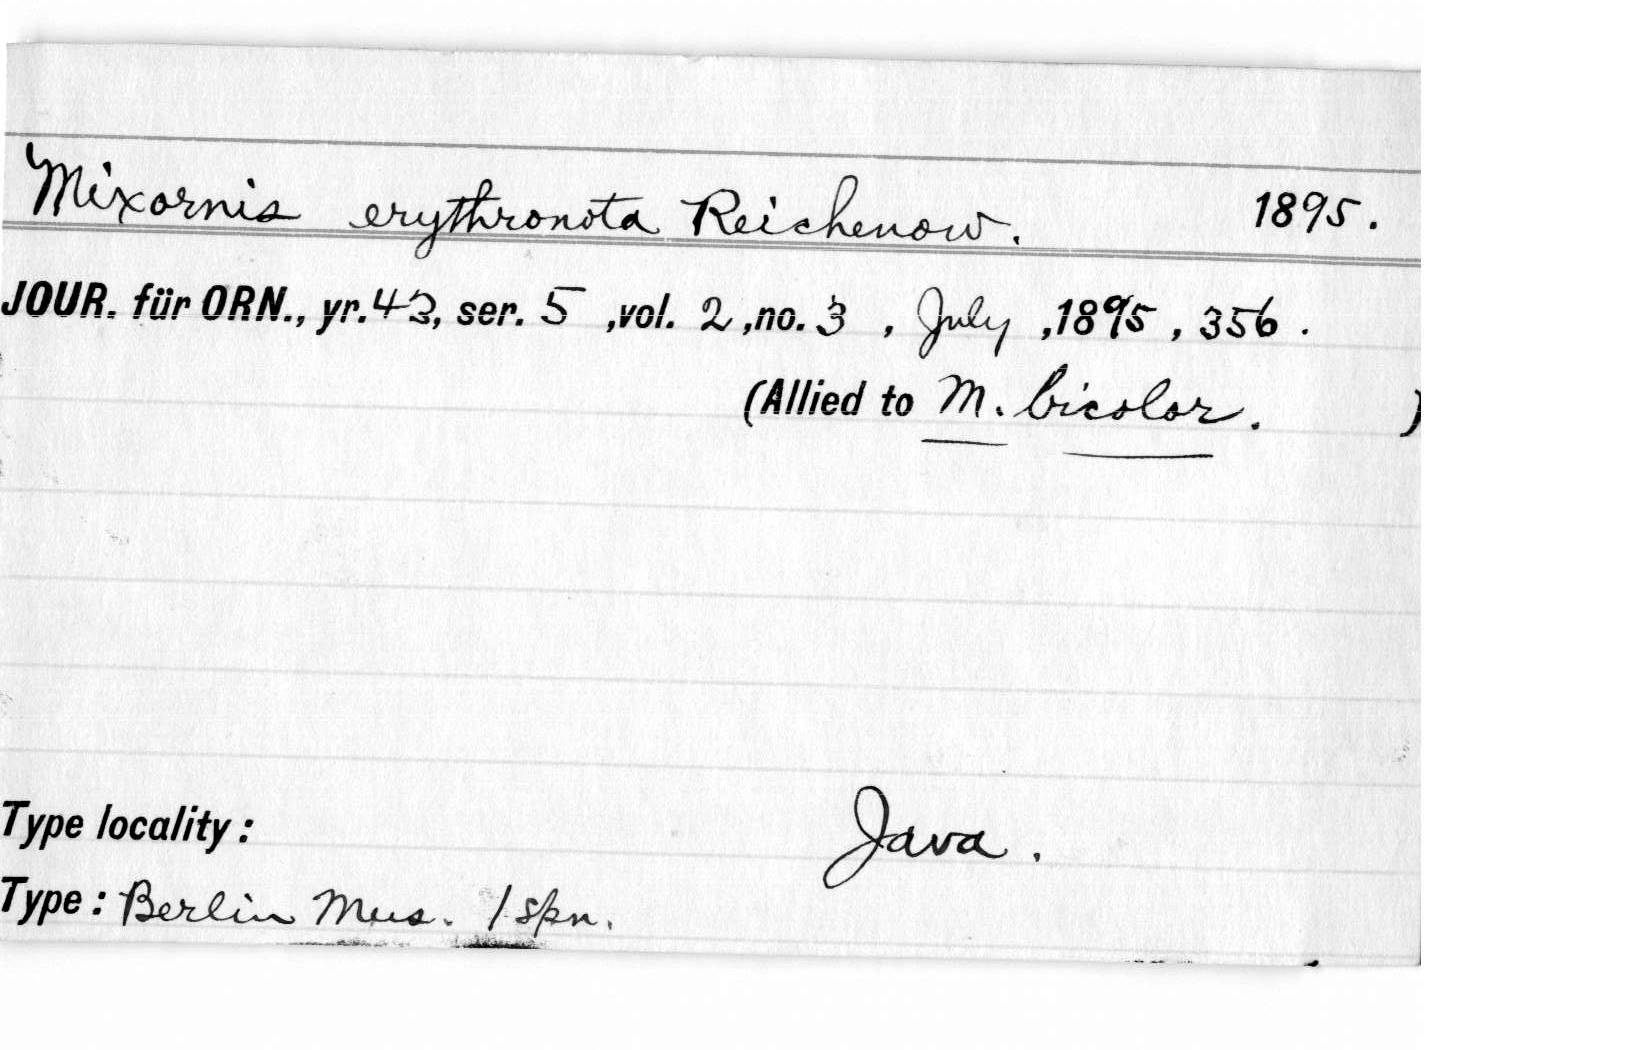 Mixornis erythronota Reichenow. 1895.
JOUR. für ORN., yr. 43, ser. 5 ,vol. 2 ,no. 3 , July ,1895 , 356 .
(Allied to M. bicolor. )
Type locality : Java .
Type : Berlin Mus. 1 spn.